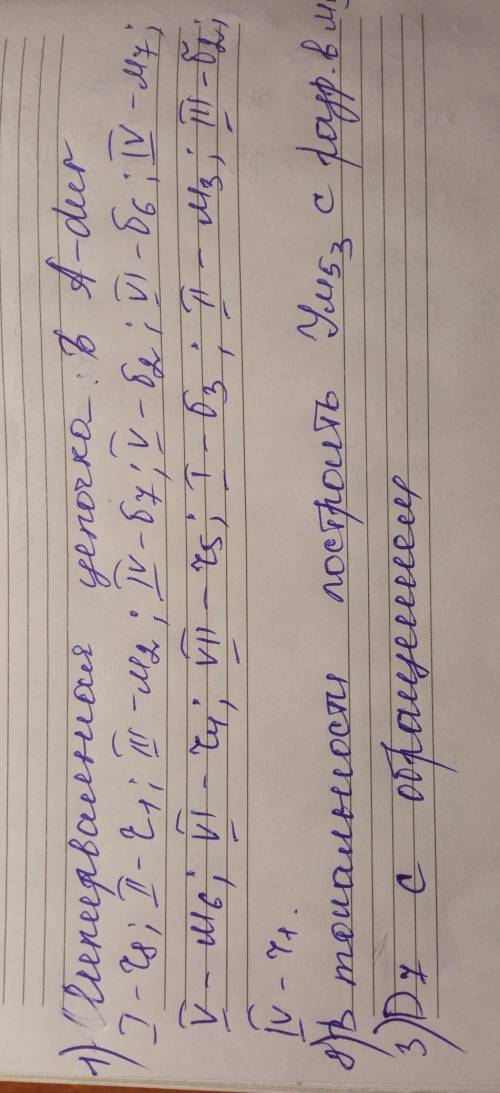 1) Интервальная цепочка: в A-dur
I - ч8; II - ч1; III - м2; IV - б7; V - б2; VI - б6; IV - м7;
V - м6; VI - ч4; VII - ч5; I - б3; II - м3; III - б2;
IV - ч1.
2) В тональности построить Ум53 с разр. в
3) D7 с обращением